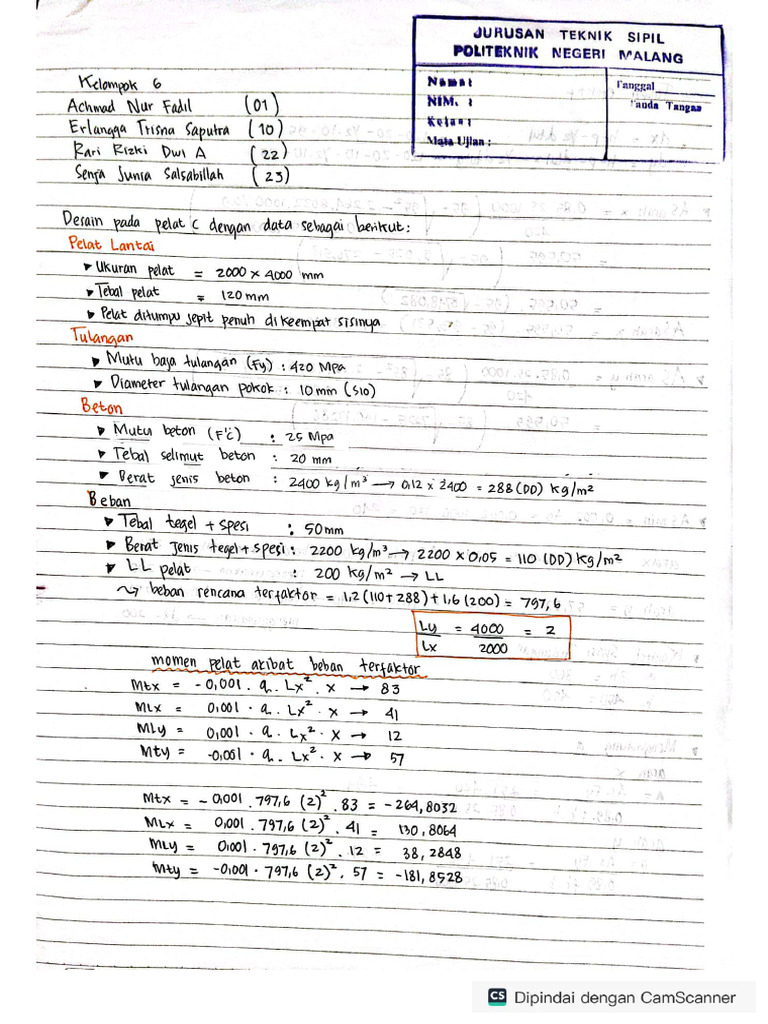 JURUSAN TEKNIK SIPIL
POLITEKNIK NEGERI MALANG
Nama :
NIM. :
Kelas :
Mata Ujian :
Tanggal
Tanda Tangan
Kelompok 6
Achmad Nur Fadil (01)
Erlangga Trisna Saputra (10)
Rari Rizki Dwi A (22)
Senja Junia Salsabillah (23)
Desain pada pelat C dengan data sebagai berikut:
Pelat Lantai
▸ Ukuran pelat = 2000 x 4000 mm
▸ Tebal pelat = 120 mm
▸ Pelat ditumpu jepit penuh di keempat sisinya
Tulangan
▸ Mutu baja tulangan (Fy) : 420 MPa
▸ Diameter tulangan pokok : 10 mm (S10)
Beton
▸ Mutu beton (F'c) : 25 Mpa
▸ Tebal selimut beton : 20 mm
▸ Berat jenis beton : 2400 kg/m³ → 0,12 x 2400 = 288 (DD) kg/m²
Beban
▸ Tebal tegel + spesi : 50 mm
▸ Berat Jenis tegel + spesi : 2200 kg/m³ → 2200 x 0,05 = 110 (DD) kg/m²
▸ LL pelat : 200 kg/m² → LL
↝ beban rencana terfaktor = 1,2 (110 + 288) + 1,6 (200) = 797,6
Ly/Lx = 4000/2000 = 2
momen pelat akibat beban terfaktor
Mtx = -0,001 . q . Lx² . x → 83
MLx = 0,001 . q . Lx² . x → 41
MLy = 0,001 . q . Lx² . x → 12
Mty = -0,001 . q . Lx² . x → 57
Mtx = -0,001 . 797,6 (2)² . 83 = -264,8032
MLx = 0,001 . 797,6 (2)² . 41 = 130,8064
MLy = 0,001 . 797,6 (2)² . 12 = 38,2848
Mty = -0,001 . 797,6 (2)² . 57 = -181,8528
CS Dipindai dengan CamScanner